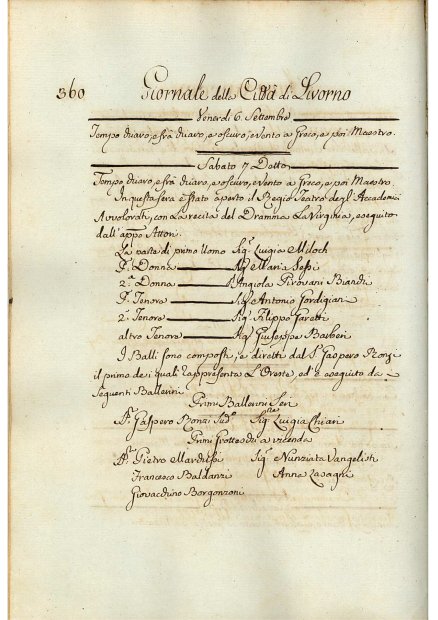 360 Giornale della Città di Livorno
Venerdi 6. Settembre
Tempo chiaro, e frà chiaro, e oscuro, e vento a Greco, e poi Maestro.
Sabato 7 Detto
Tempo chiaro, e frà chiaro, e oscuro, e vento a Greco, e poi Maestro.
In questa sera è stato aperto il Regio Teatro degl'Accademici
Avvolorati, con la recita del Dramma La Virginia, eseguito
dall'app.o Attori.
La parte di primo Uomo Sig.r Luigia Miloch
P.a Donna Sig.a Maria Sessi
2.a Donna Angiola Pirovani Bianchi
P.o Tenore Sig.r Antonio Gordigiani
2.o Tenore Sig.r Filippo Galetti
altro Tenore Sig.r Giuseppe Barberi
I Balli sono composti, e diretti dal S.r Gaspero Ronzi
il primo dei quali rappresenta L'Oreste, ed è eseguito da
Seguenti Ballerini
Primi Ballerini Serj
S.r Gaspero Ronzi Sud.o Sig.ra Luigia Chiari
Primi Grotteschi a vicenda
S.r Pietro Marchesi Sig.e Nunziata Vangelisti
Francesco Baldanzi Anna
Giovacchino Borgonzoni